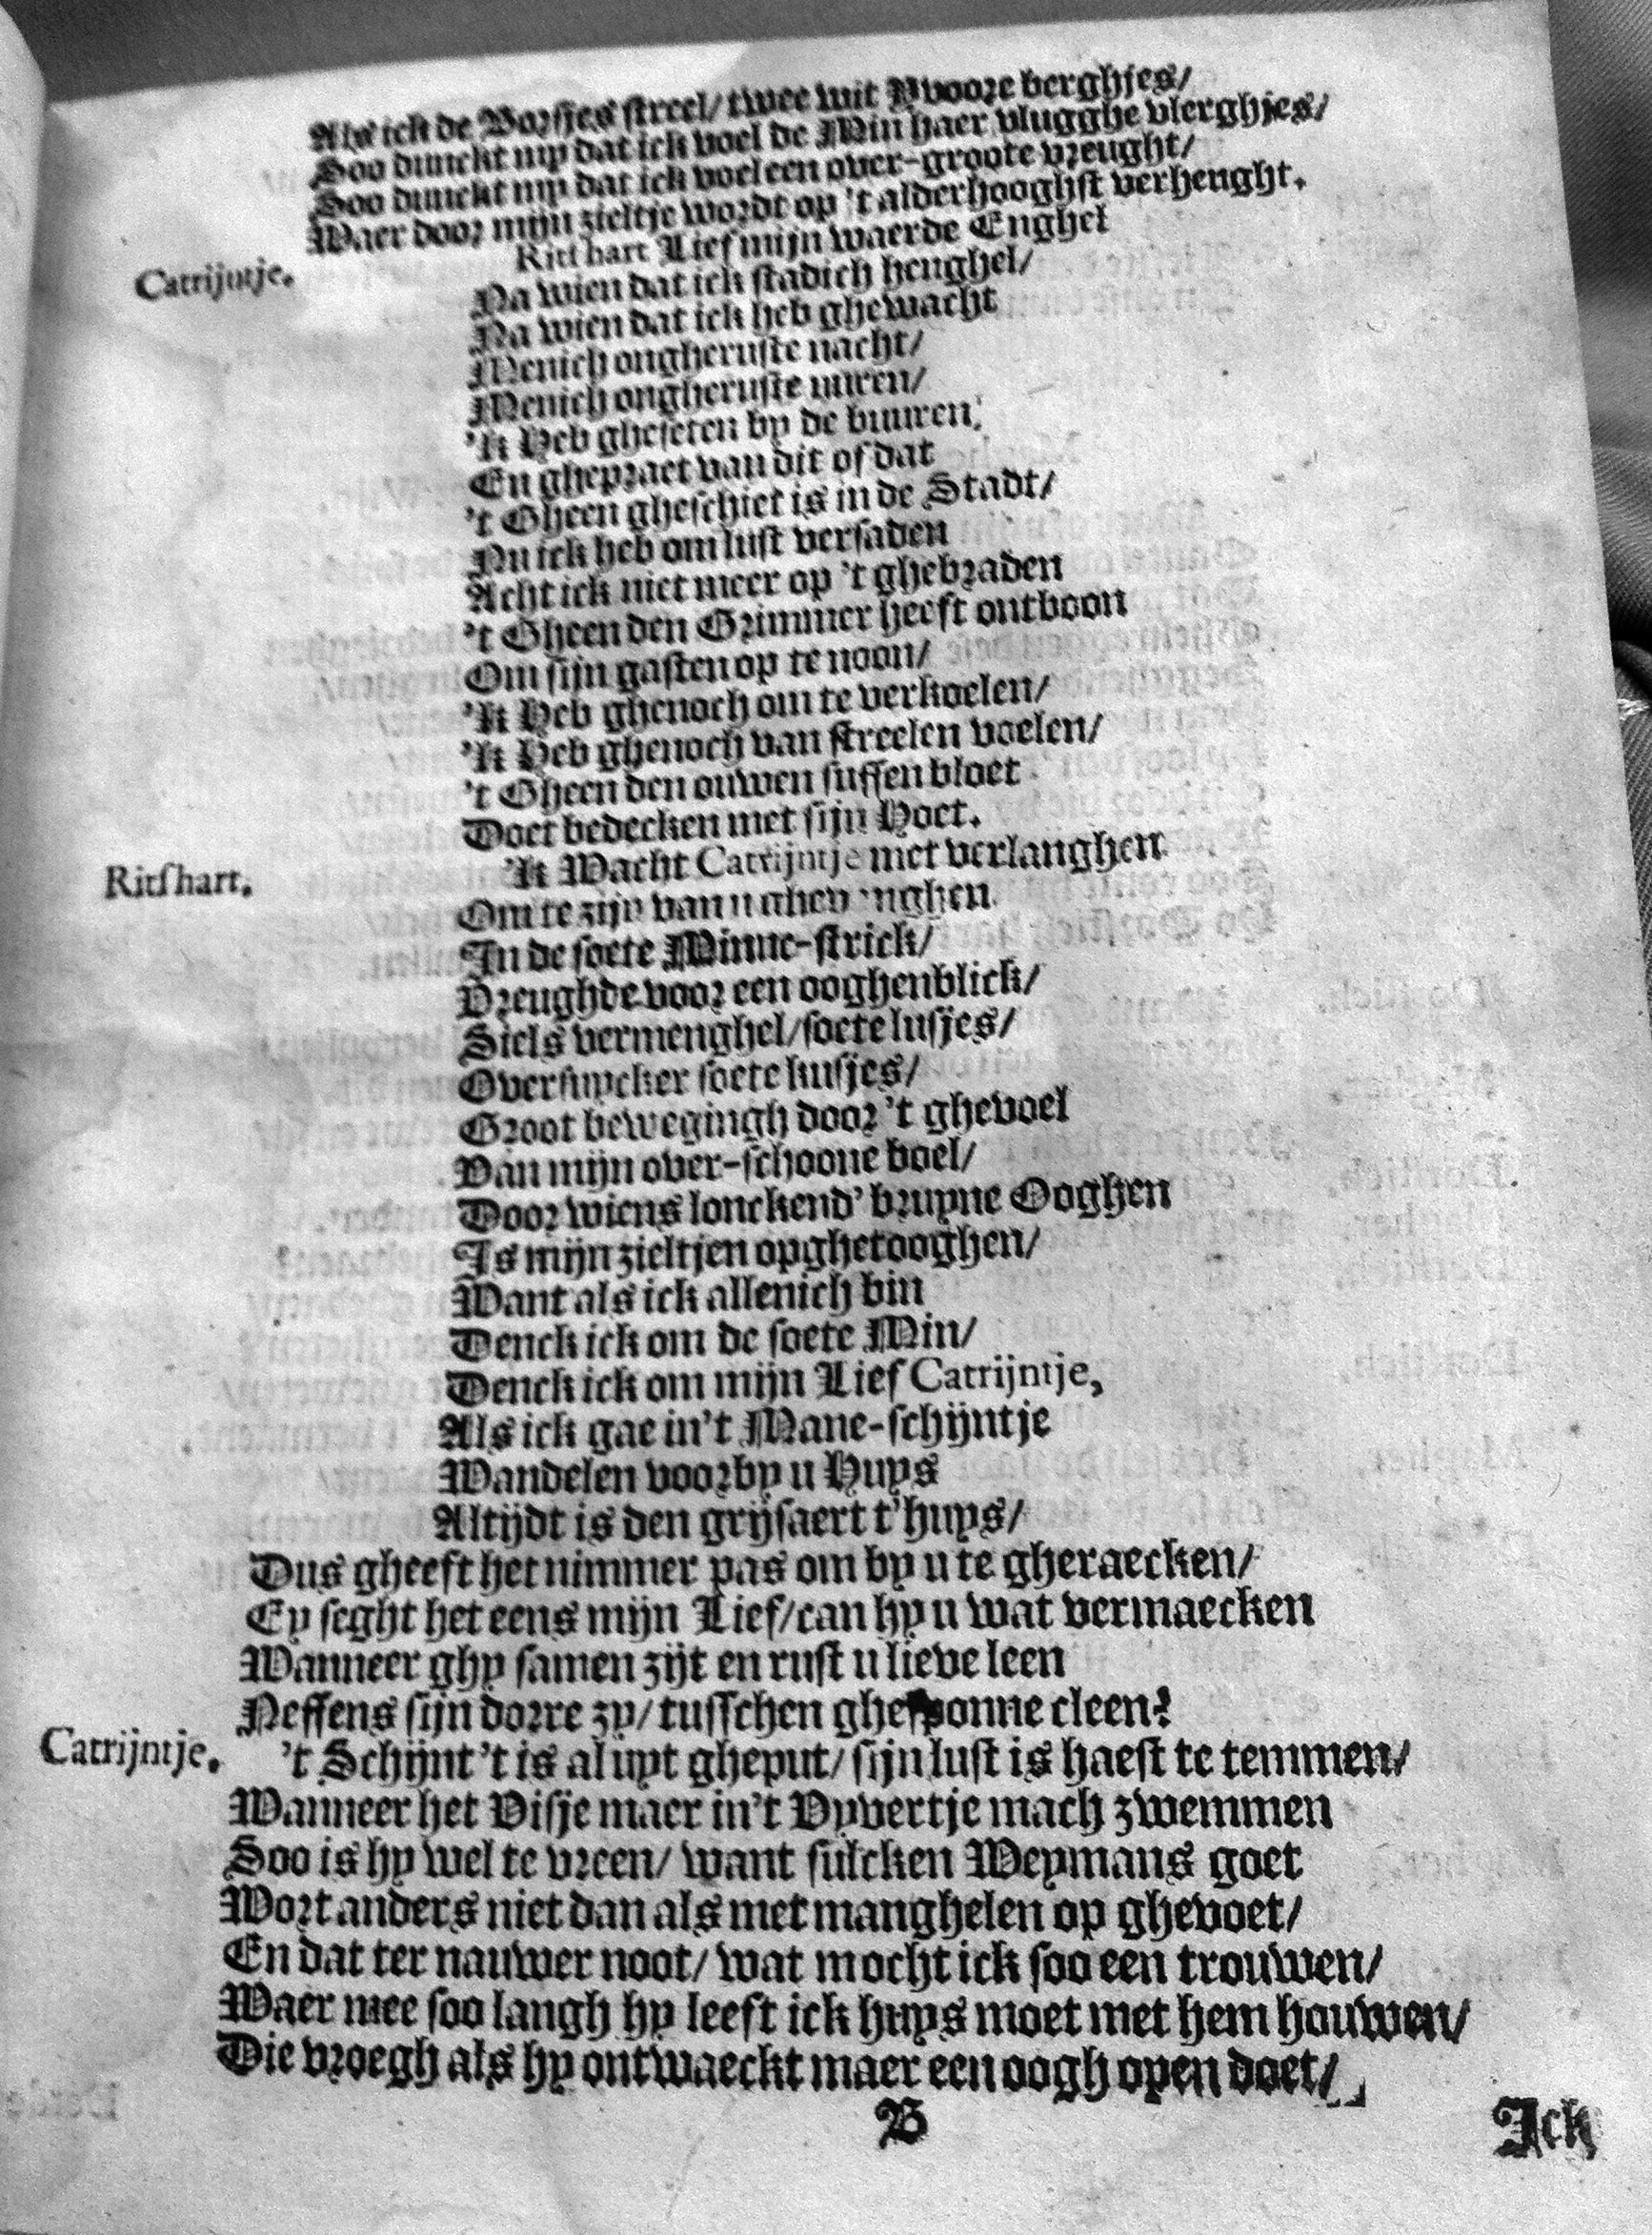 Als ick de Borsjes streel/ twee wit Yvoore berghjes/
Soo dunckt my dat ick voel de Min haer vlugghe vlerghjes/
Soo dunckt my dat ick voel een over-groote vreught/
Waer door mijn zieltje wordt op 't alderhooghst verheught.
Catrijntje. Ritshart Lief mijn waerde Enghel
Na wien dat ick stadich henghel/
Na wien dat ick heb ghewacht
Menich ongheruste nacht/
Menich ongheruste uuren/
'k Heb gheseten by de buuren,
En ghepraet van dit of dat
't Gheen gheschiet is in de Stadt/
Nu ick heb om lust versaden
Acht ick niet meer op 't ghebraden
't Gheen den Grimmer heeft ontboon
Om sijn gasten op te noon/
'k Heb ghenoch om te verkoelen/
'k Heb ghenoch van streelen voelen/
't Gheen den ouwen suffen bloet
Doet bedecken met sijn Hoet.
Ritshart. 'k Wacht Catrijntje met verlanghen
Om te zijn van u
In de soete Minne-strick/
Vreughde voor een ooghenblick/
Siels vermenghel/soete lusjes/
Oversuycker soete kusjes/
Groot bewegingh door 't ghevoel
Van mijn over-schoone boel/
Door wiens lonckend' bruyne Ooghen
Is mijn zieltjen opghetooghen/
Want als ick allenich bin
Denck ick om de soete Min/
Denck ick om mijn Lief Catrijntje,
Als ick gae in't Mane-schijntje
Wandelen voorby u Huys
Altijdt is den grijsaert t'huys/
Dus gheeft het nimmer pas om by u te gheraecken/
Ey seght het eens mijn Lief/can hy u wat vermaecken
Wanneer ghy samen zijt en rust u lieve leen
Neffens sijn dorre zy/ tusschen ghesponne cleen?
Catrijntje. 't Schijnt 't is al uyt gheput/ sijn lust is haest te temmen/
Wanneer het Visje maer in't Vyvertje mach zwemmen
Soo is hy wel te vreen/ want sulcken Weymans goet
Wort anders niet dan als met manghelen op ghevoet/
En dat ter nauwer noot/ wat mocht ick soo een trouwen/
Waer mee soo langh hy leeft ick huys moet met hem houwen/
Die vroegh als hy ontwaeckt maer een oogh open doet/
B
Ick